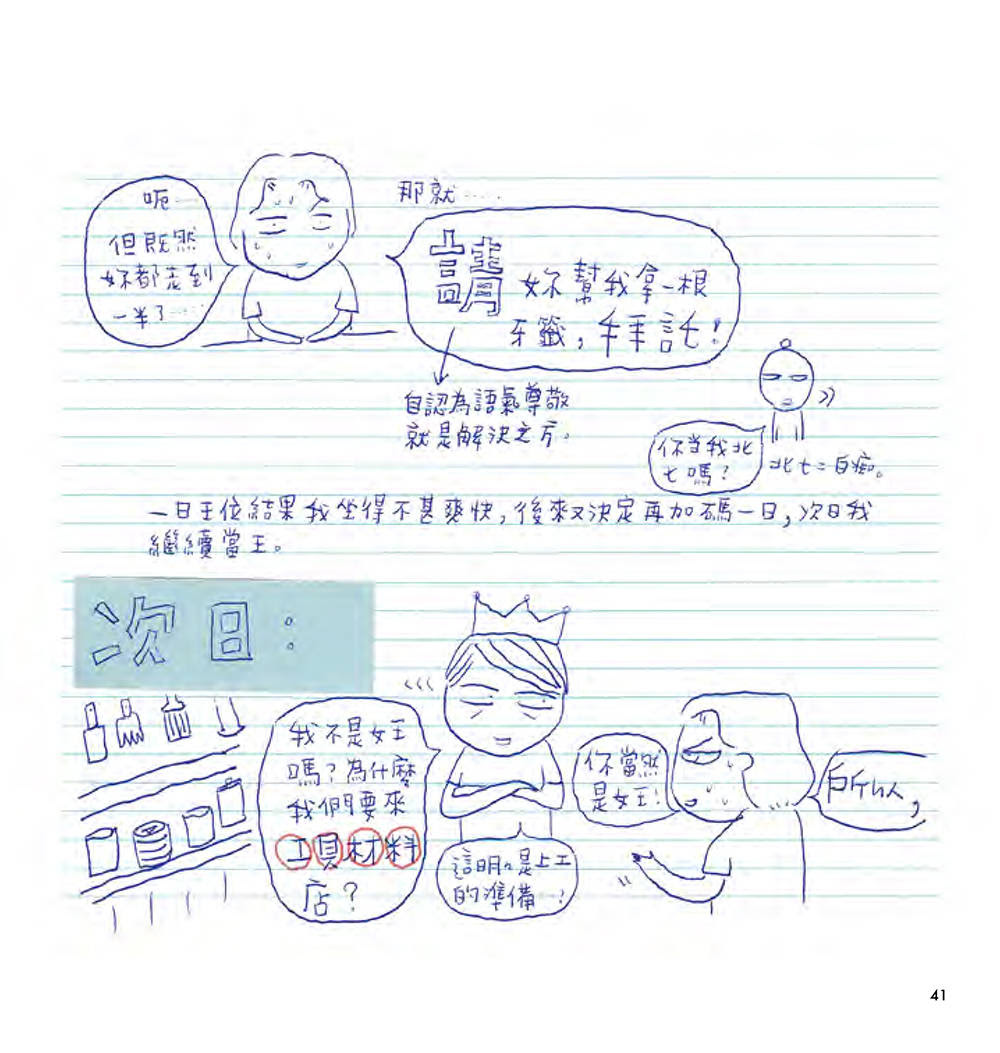 呃…
但既然
妳都走到
一半了……
那就……
請妳幫我拿一根
牙籤，拜託！
自認為語氣尊敬
就是解決之方。
你當我北
七嗎？
北七=白痴。
一日王位結果我坐得不甚爽快，後來又決定再加碼一日，次日我
繼續當王。
次日：
我不是女王
嗎？為什麼
我們要來
工具材料
店？
這明明是上工
的準備…？
你當然
是女王！
所以，
41